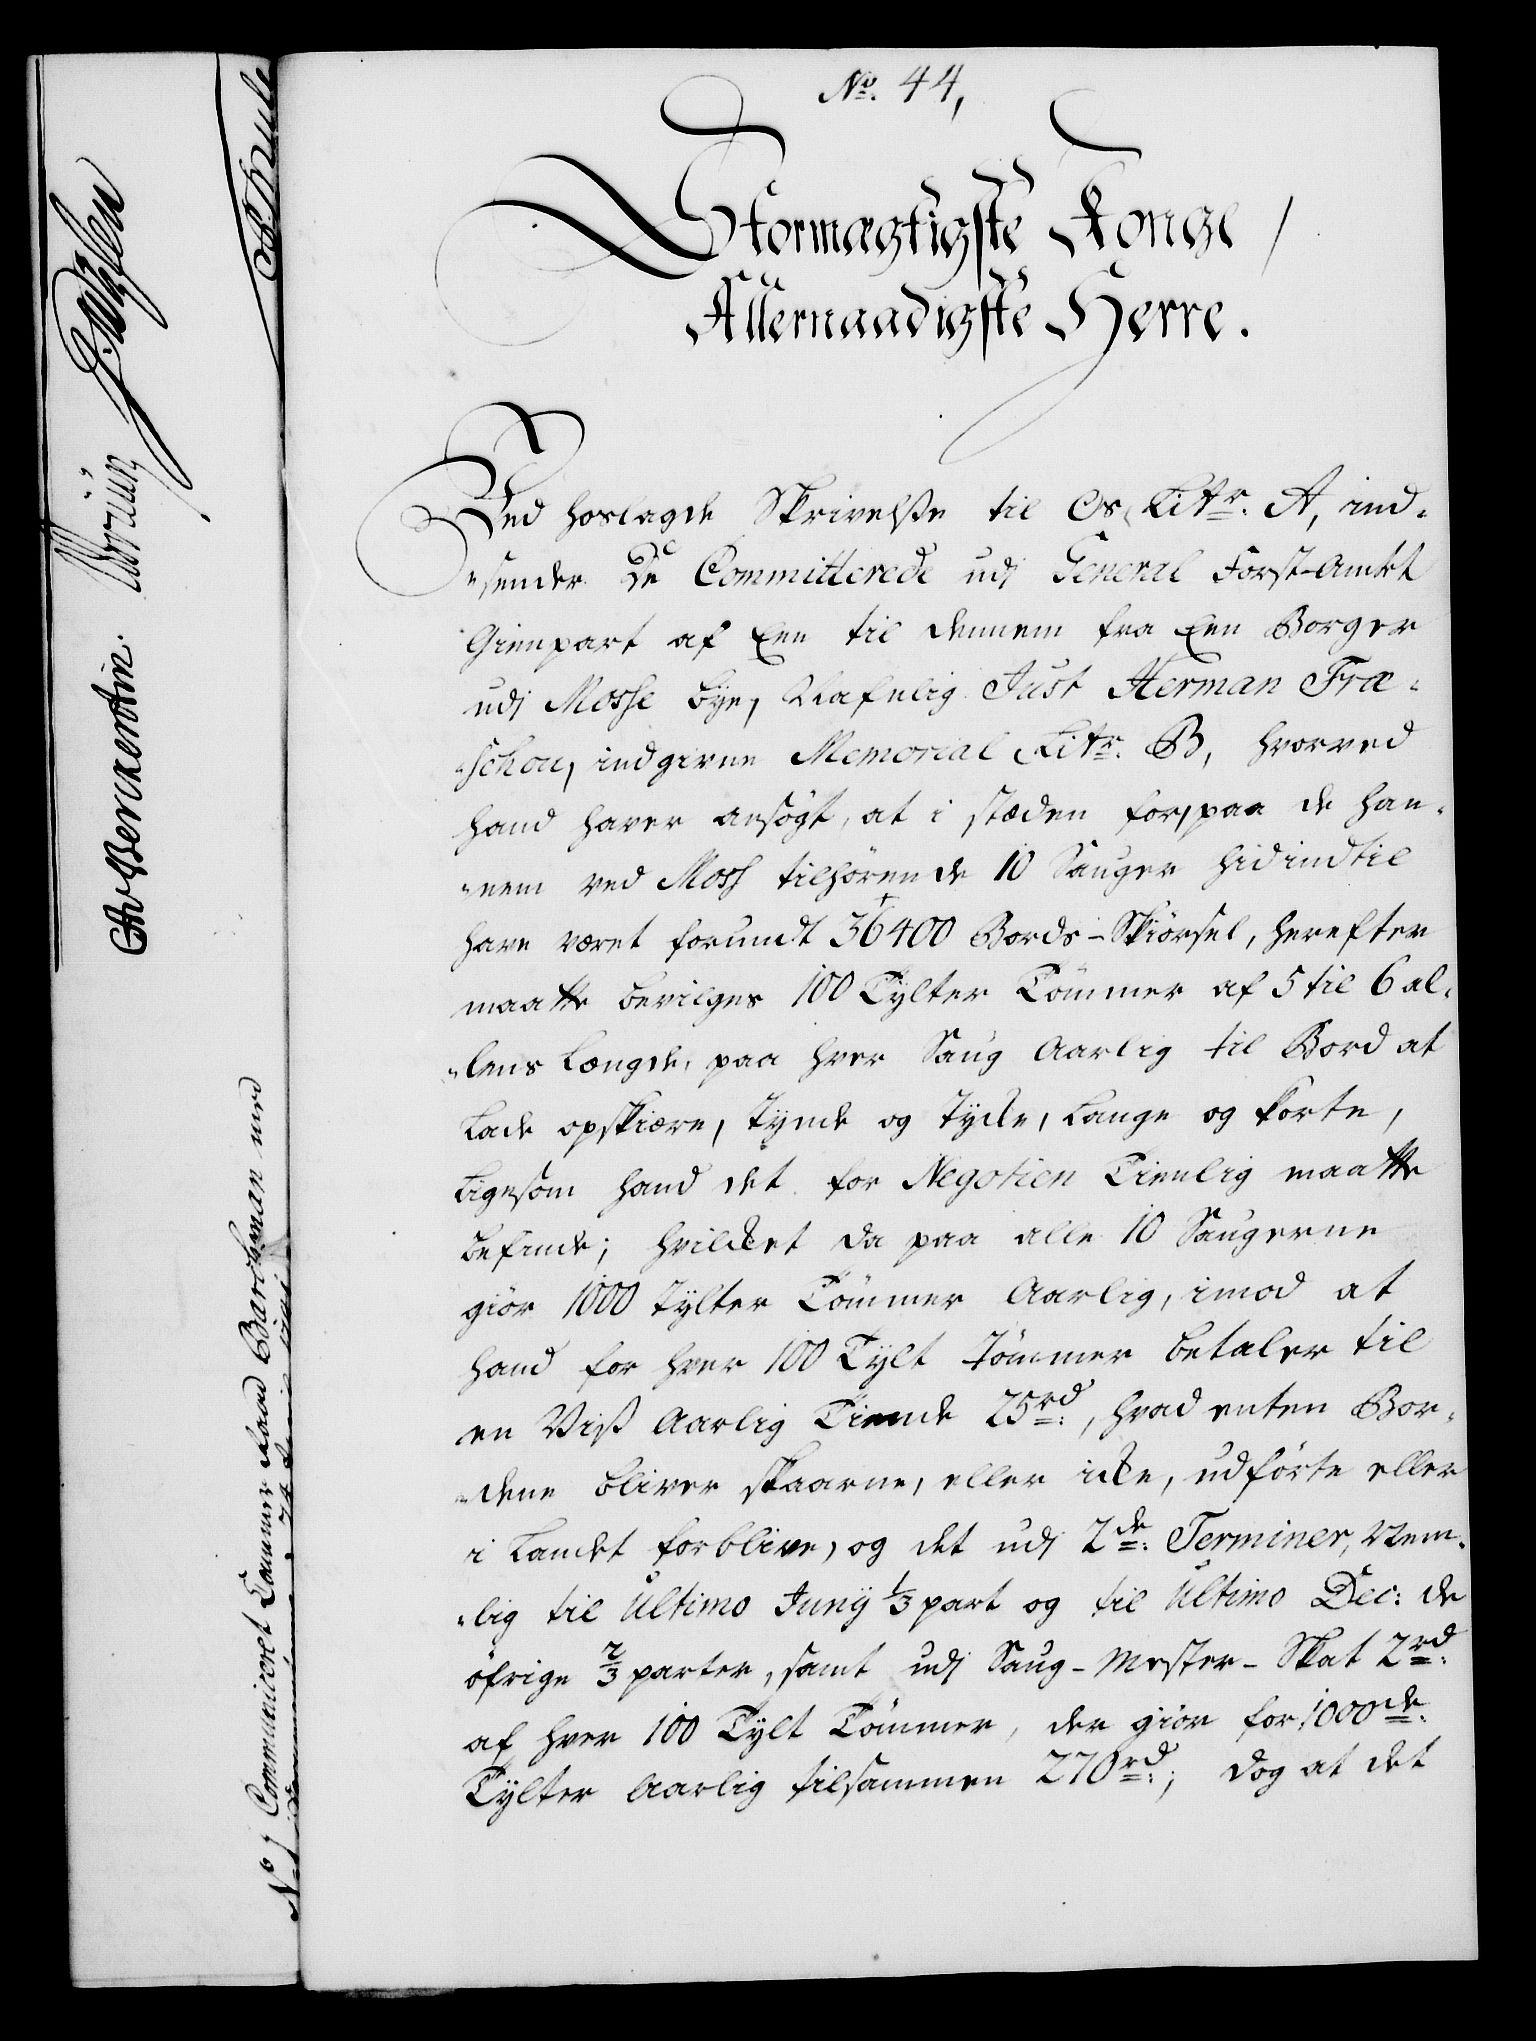 No. 44,
Stormægtigste Konge
Allernaadigste Herre.
Ved hoslagde Skrivelse til Os, Litr. A, ind-
sender De Committerede udj General Forst-Amtet
Gienpart af Een til dennem fra Een Borger
udj Mosse bye, Nafnlig Just Herman Fræ-
schou, indgivne Memorial Litr. B, hvorved
hand haver ansögt, at i stæden for, paa de han-
nem ved Moss tilhörende 10 Sauger hidindtil
have været forundt 36400 Bords-Skiörsel, herefter
maatte bevilges 100 Tylter Tömmer af 5 til 6 al-
lens Længde, paa hver Saug Aarlig til Bord at
lade opskiære, tynde og tycke, lange og korte,
ligesom hand det for Negotien tienlig maatte
befinde; hvilcket da paa alle 10 Saugerne
giör 1000 Tylter Tömmer Aarlig, imod at
hand for hver 100 Tylt Tömmer betaler til
en Viss Aarlig Tiende 25rd:, hvad enten Bor-
dene bliver skaarne, eller icke, udförte eller
i Landet forblive, og det udj 2de: Terminer, Nem-
lig til Ultimo Junij 1/3 part og til Ultimo Dec: de
öfrige 2/3 parter, samt udj Saug-Mester-Skat 2rd:
af hver 100 Tylt Tömmer, der giör for 1000de:
Tylter Aarlig tilsammen 270rd:; dog at det
CAvBerckentin.
No 1 Communiceret Cammer Raad Barchman med